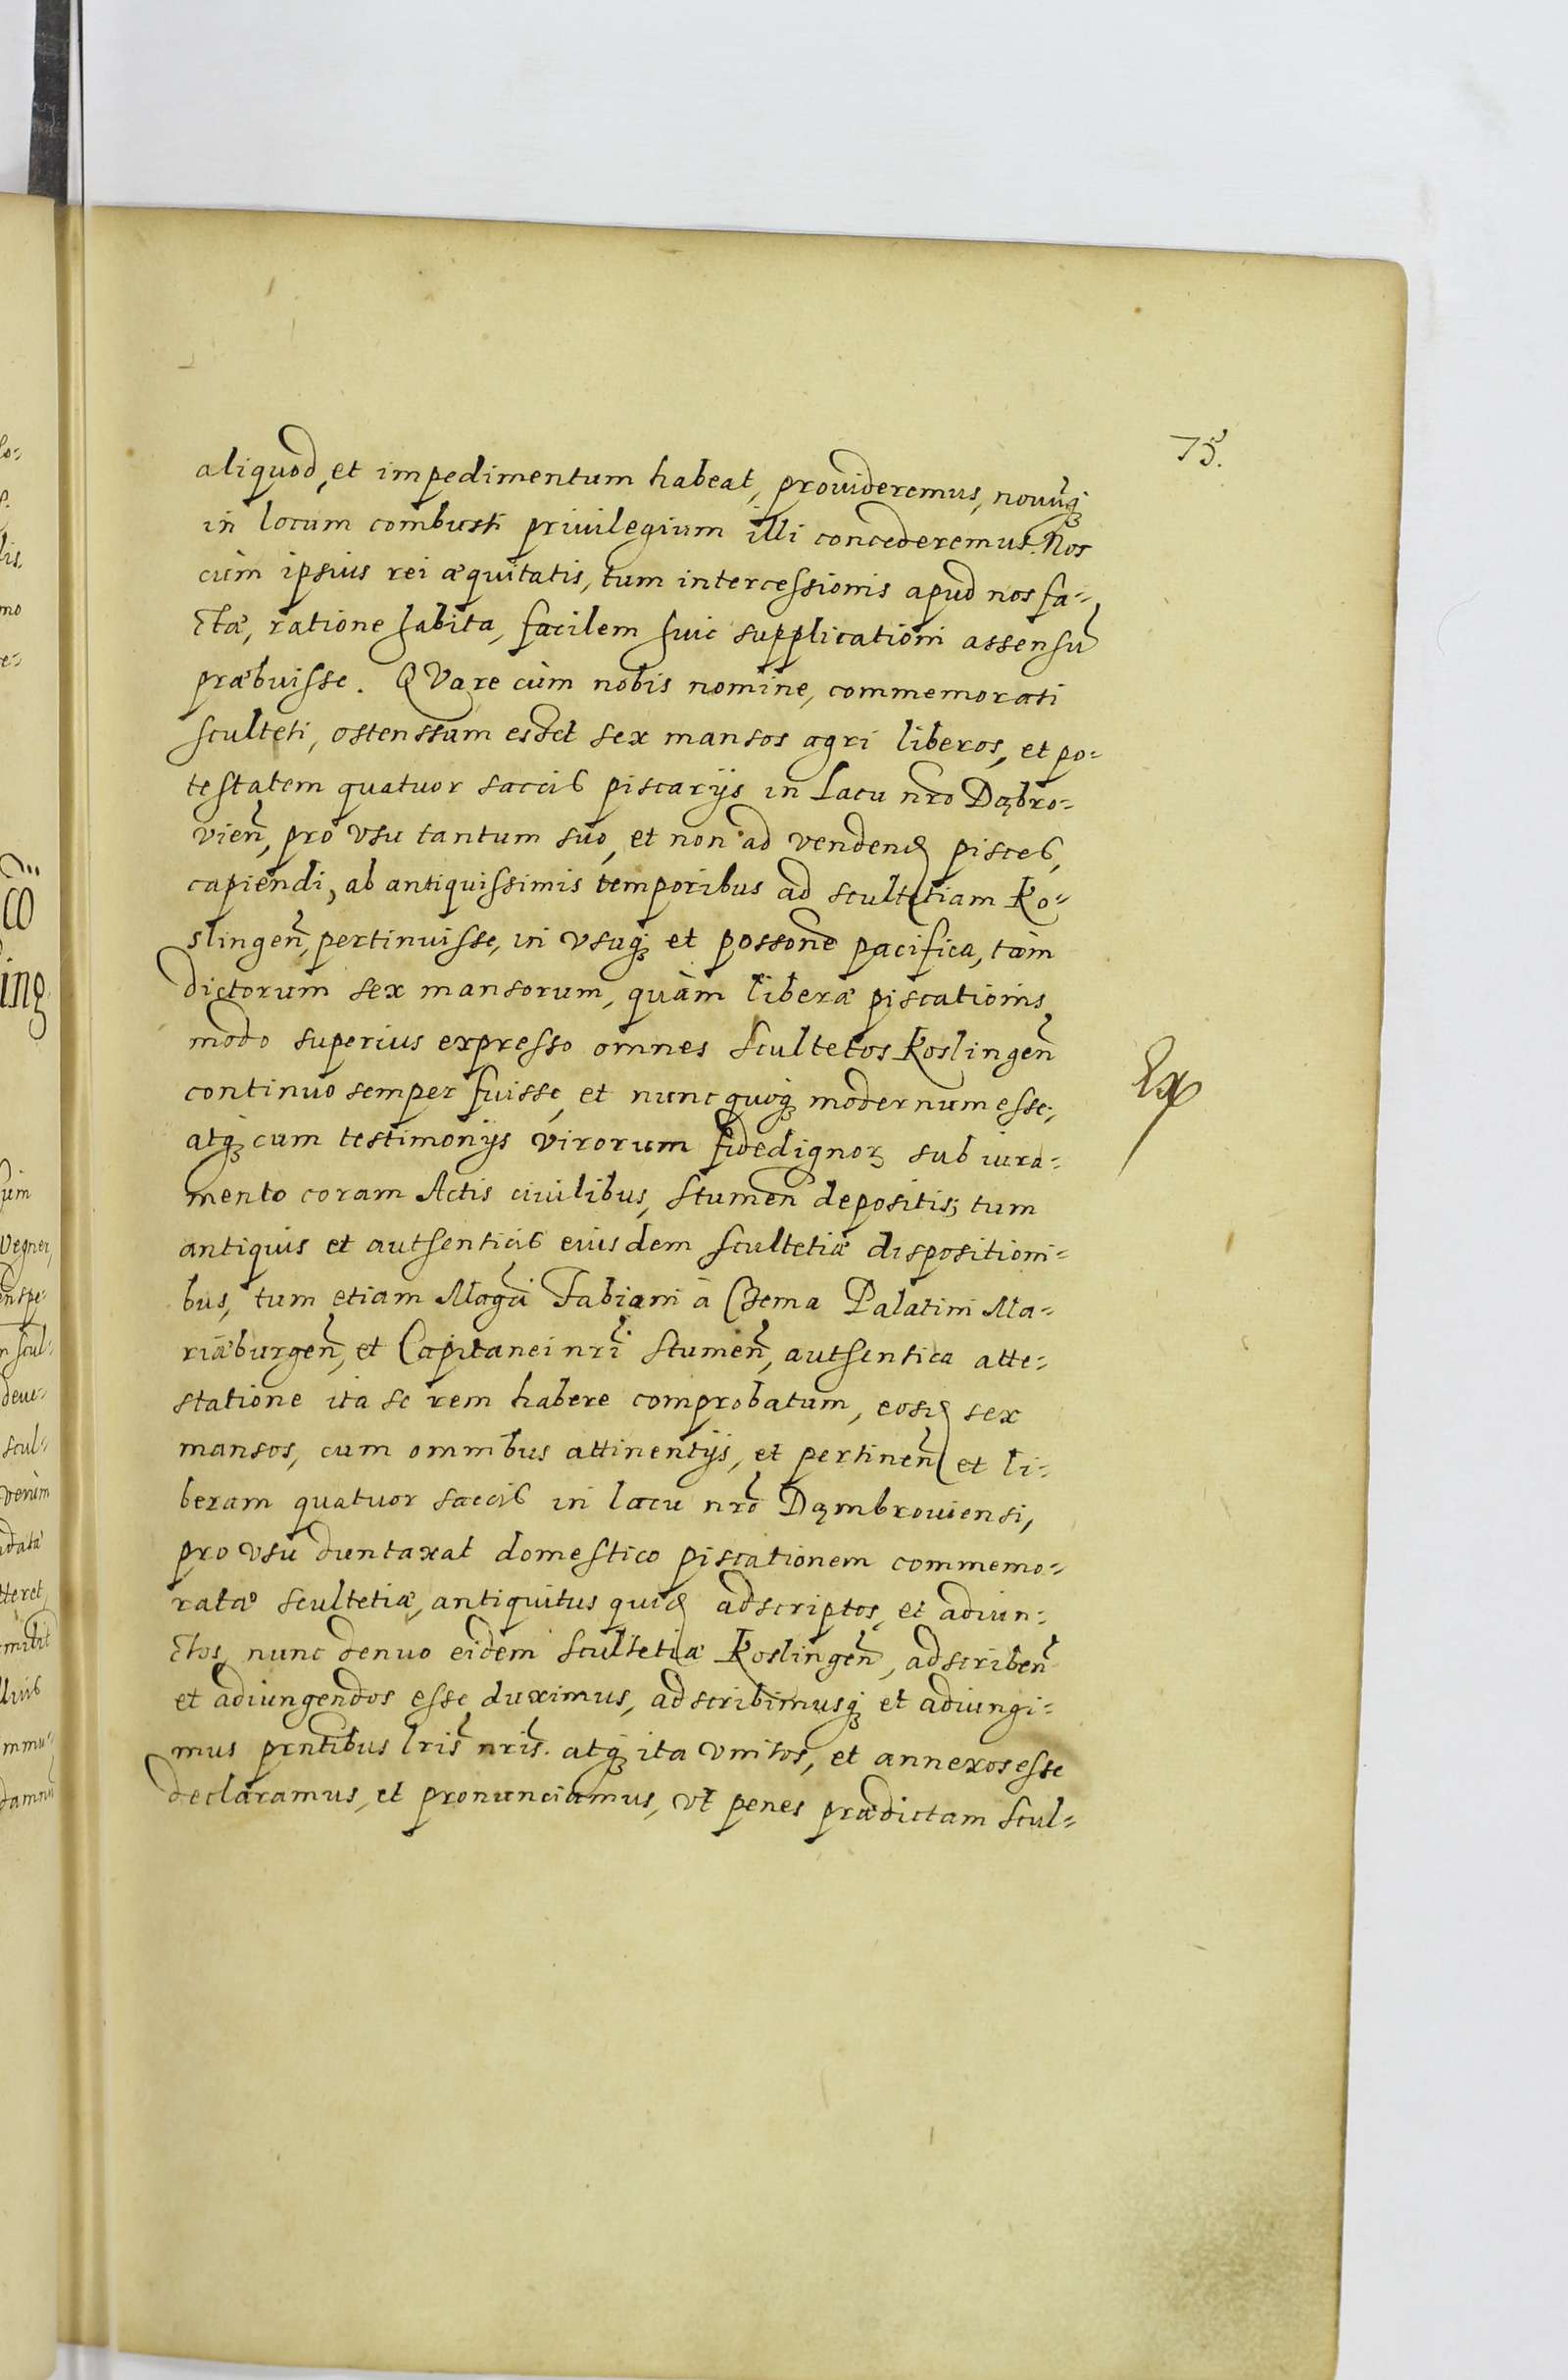 75.
aliquod, et impedimentum habeat, prouideremus, nouũq₃
in locum combusti priuilegium illi concederemus. Nos
cùm ipsius rei æquitatis, tum intercessionis apud nos fa-
ctæ, ratione habita, facilem huic supplicationi assensũ
præbuisse. QVare cùm nobis nomine, commemorati
sculteti, ostenssum esset sex mansos agri liberos, et po-
testatem quatuor saccis piscarijs in Lacu nr̃o Dąbro-
vieñ, pro vsu tantum suo, et non ad vendenđ pisces,
capiendi, ab antiquissimis temporibus ad scultetiam Ko-
slingeñ, pertinuisse, in vsuq₃ et possone pacifica, tàm
dictorum sex mansorum, quàm liberæ piscationis
modo superius expresso omnes Scultetos Koslingeñ
continuo semper fuisse, et nunc quoq₃ modernum esse;
atq₃ cum testimonijs virorum fidedignoꝝ sub iura-
mento coram Actis ciuilibus, Stumeñ depositis; tum
antiquis et autsenticis eiusdem scultetiæ dispositioni-
bus, tum etiam Magci Fabiani à Czema Palatini Ma-
riæburgeñ, et Capitanei nr̃i Stumeñ, autsentica atte-
statione ita se rem habere comprobatum, eosđ sex
mansos, cum omnibus attinentijs, et pertineñ et li-
beram quatuor saccis in lacu nr̃o Dąmbrouiensi,
pro vsu duntaxat domestico piscationem commemo-
ratæ scultetiæ, antiquitus quiđ adscriptos, et adiun-
ctos, nunc denuo eidem scultetiæ Koslingeñ, adscribeñ
et adiungendos esse duximus, adscribimusq₃ et adiungi-
mus prñtibus lr̃is nr̃is. atq₃ ita vnitos, et annexos esse
declaramus, et pronunciamus, vt penes prædictam Scul-
Ex